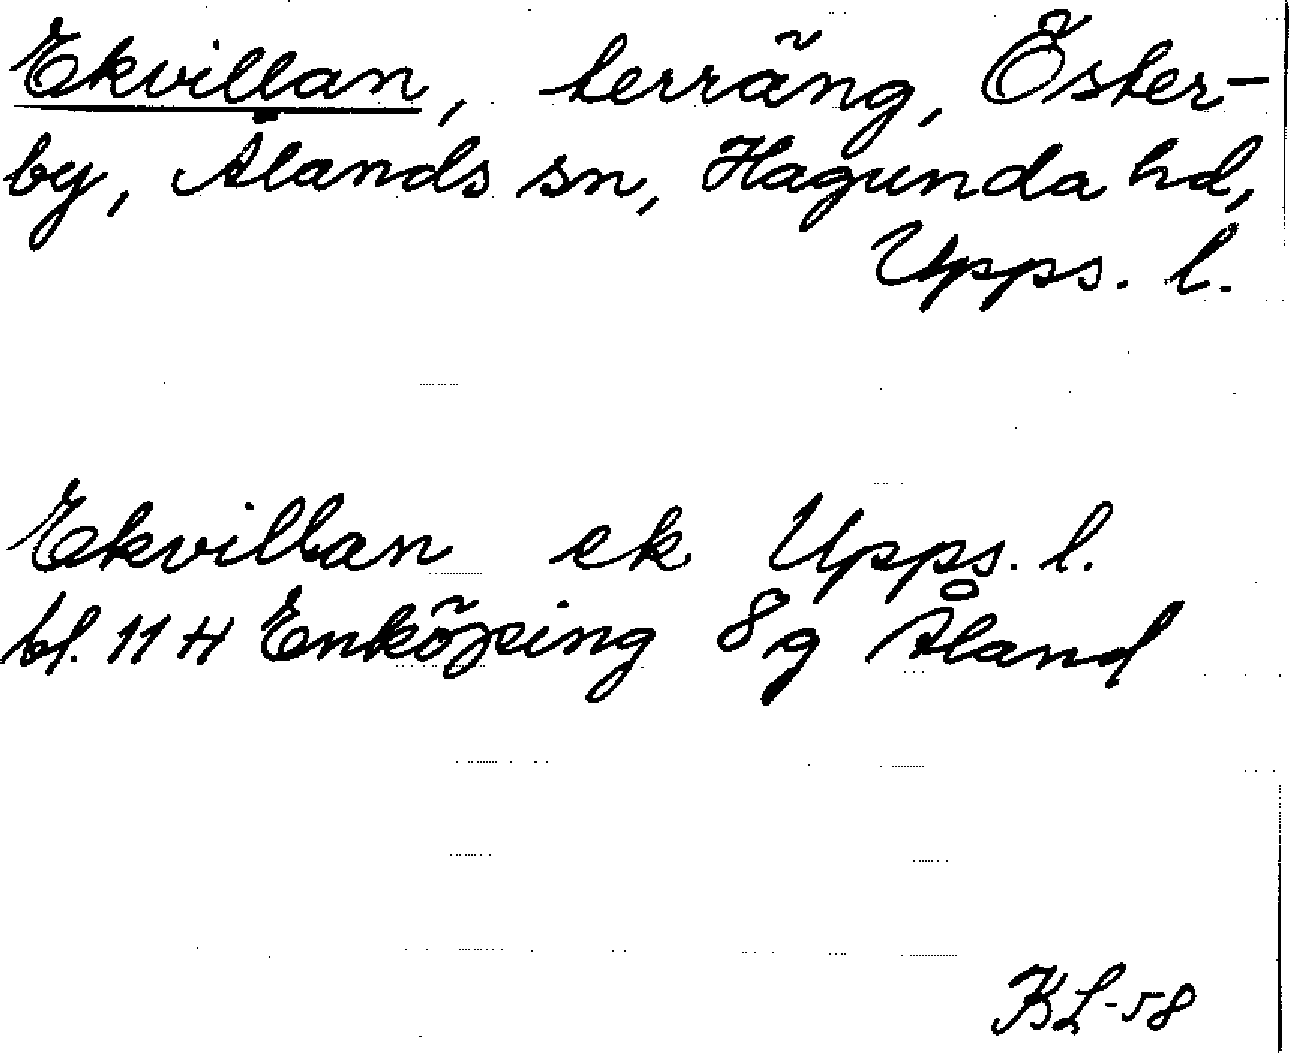 Ekvillan, terräng, Öster-
by, Ålands sn, Hagunda hd,
Upps. l.
Ekvillan ek Upps. l.
bl. 11 H Enköping 8g Åland
KL-58